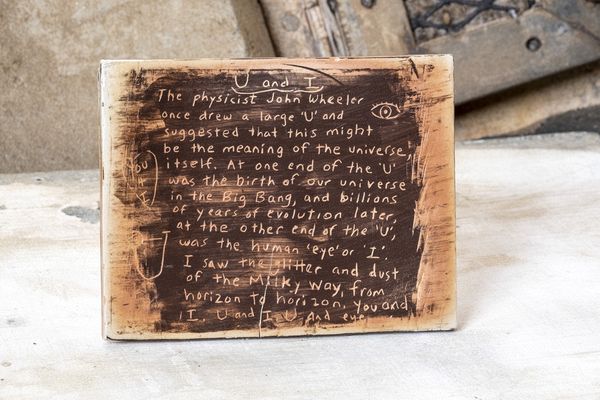 U and I
The physicist John Wheeler
once drew a large 'U' and
suggested that this might
be the meaning of the universe,
itself. At one end of the 'U'
was the birth of our universe
in the Big Bang, and billions
of years of evolution later,
at the other end of the 'U',
was the human 'eye' or 'I'.
I saw the glitter and dust
of the Milky Way, from
horizon to horizon. You and
I I. U and I U And eye